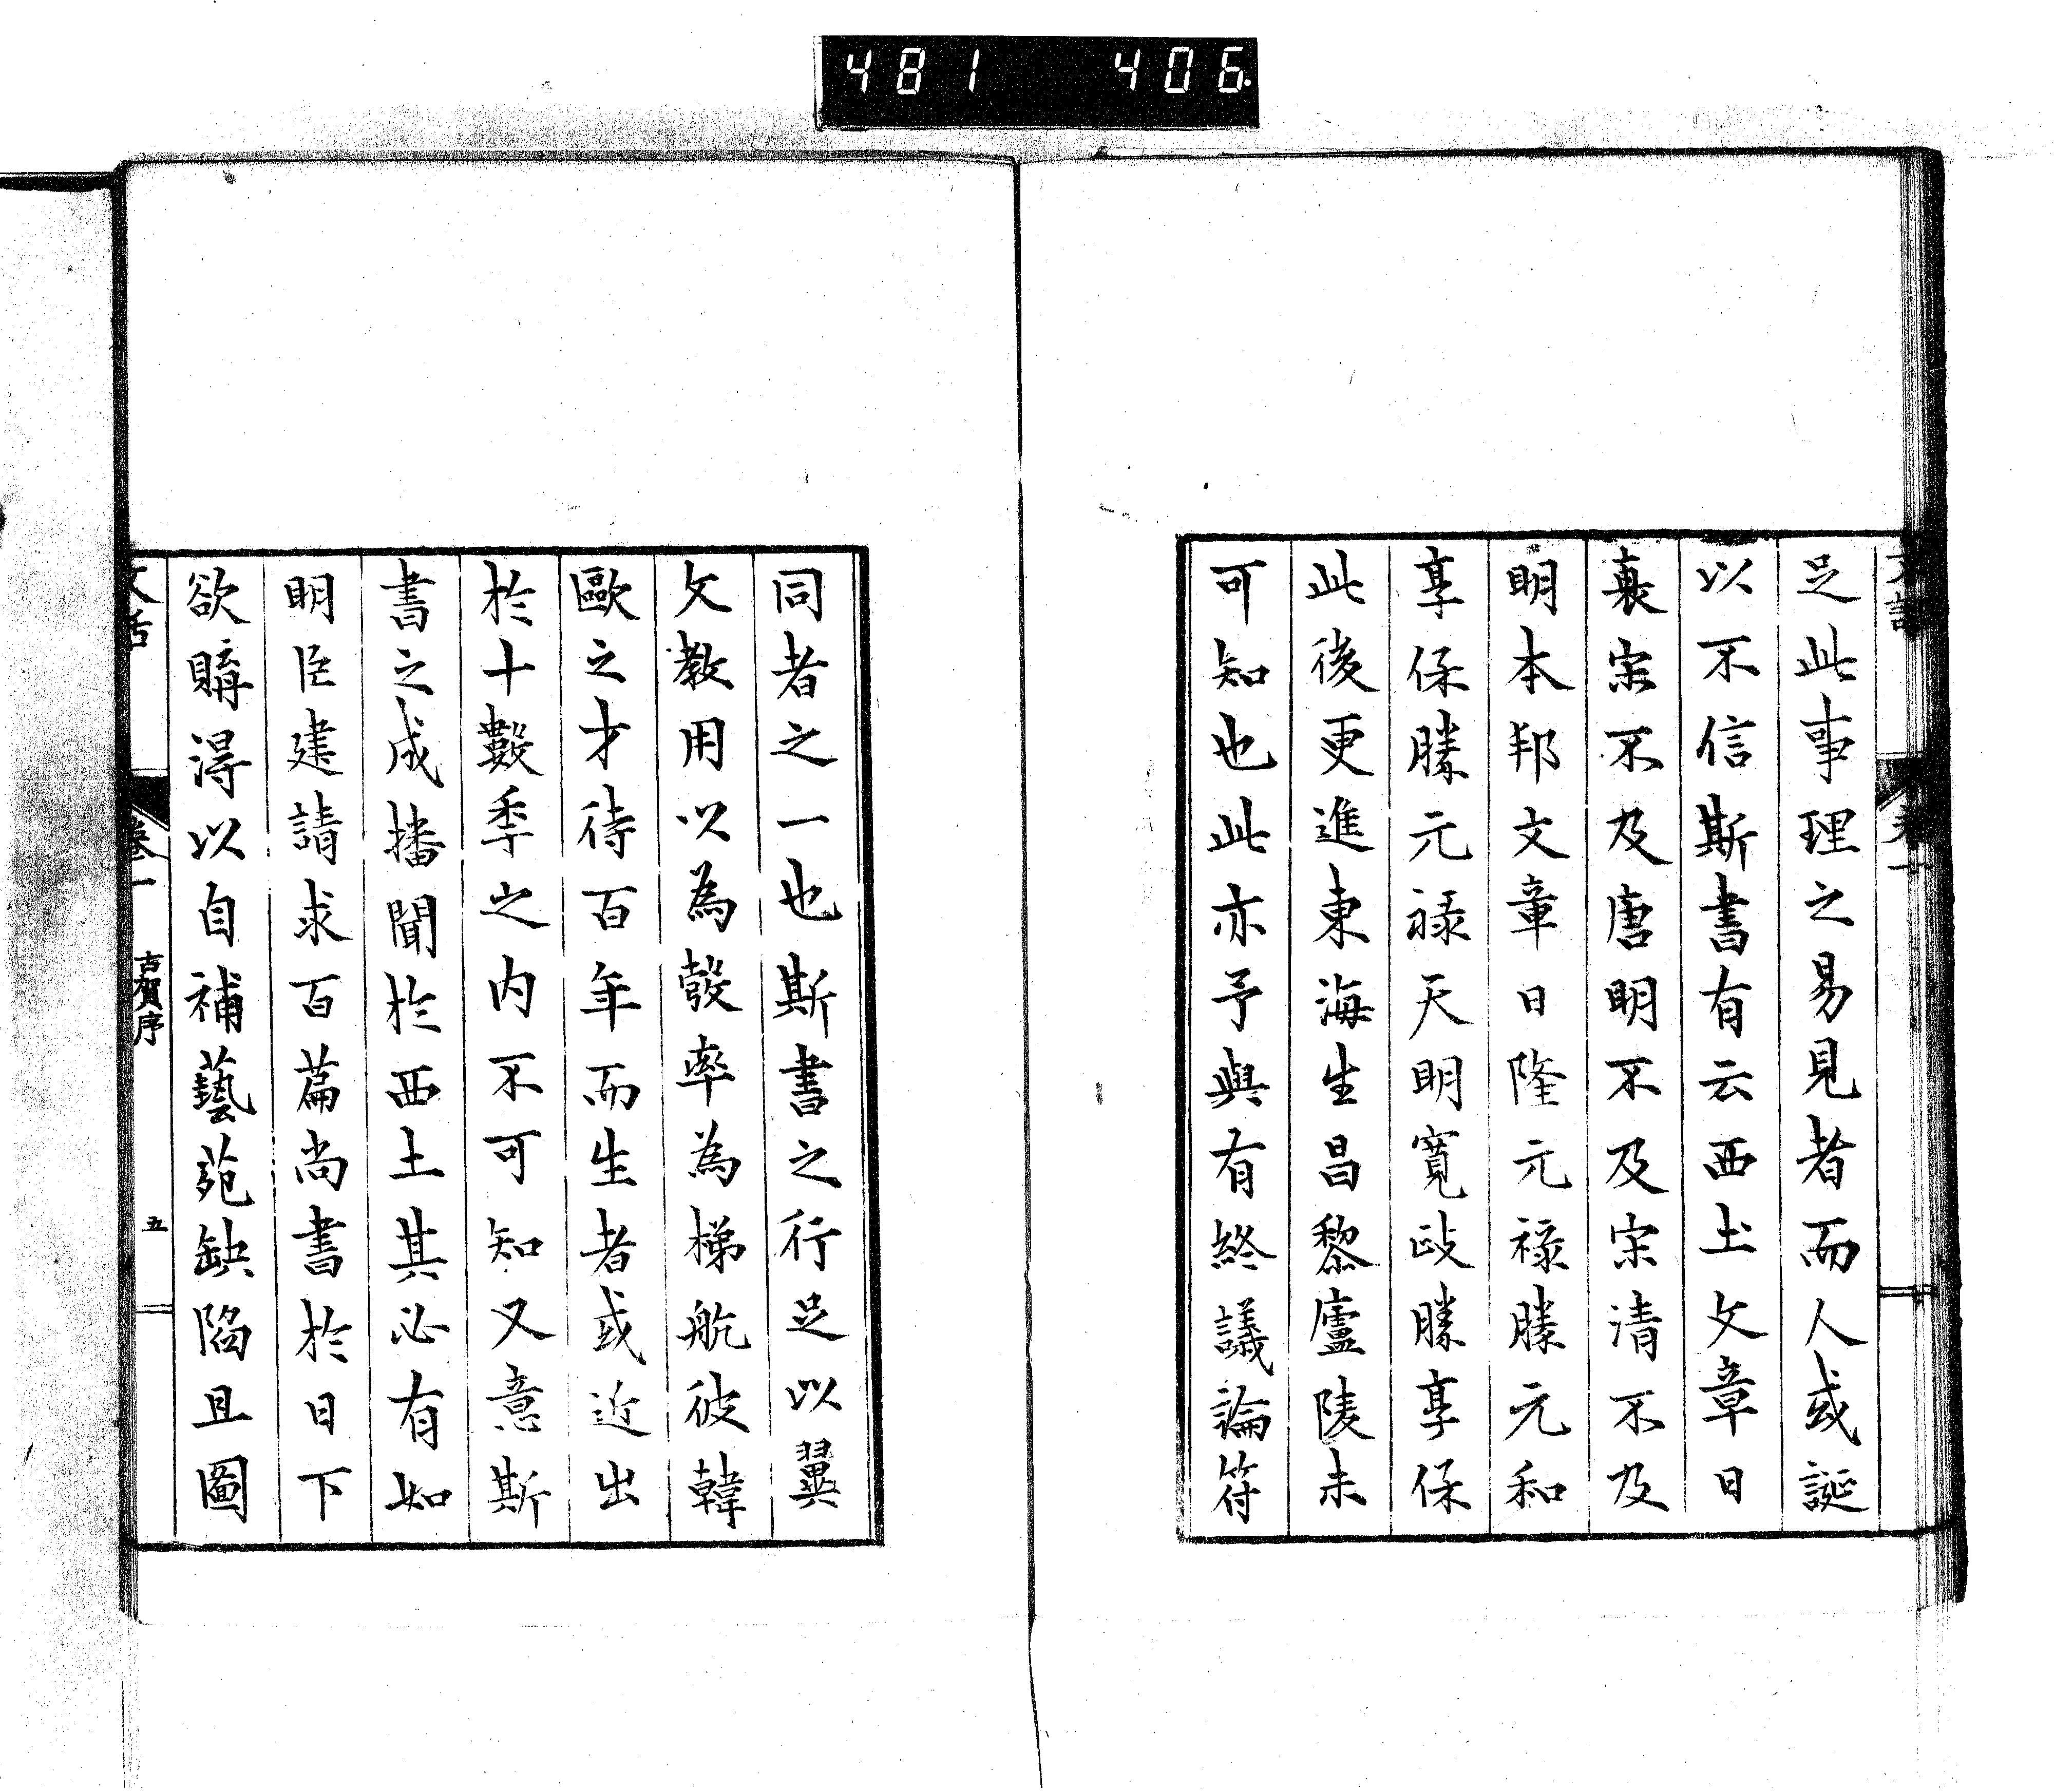 481 406.
足此事理之易見者而人或誕
以不信斯書有云西土文章日
衰宋不及唐明不及宋清不及
明本邦文章日隆元祿勝元和
享保勝元祿天明寬政勝享保
此後更進東海生昌黎廬陵未
可知也此亦予與有終議論符
同者之一也斯書之行足以翼
文教用以為彀率為梯航彼韓
歐之才待百年而生者或近出
於十數季之內不可知又意斯
書之成播聞於西土其必有如
明臣建請求百篇尚書於日下
欲購得以自補藝苑缺陷且圖
文話
卷一
古賀序
五